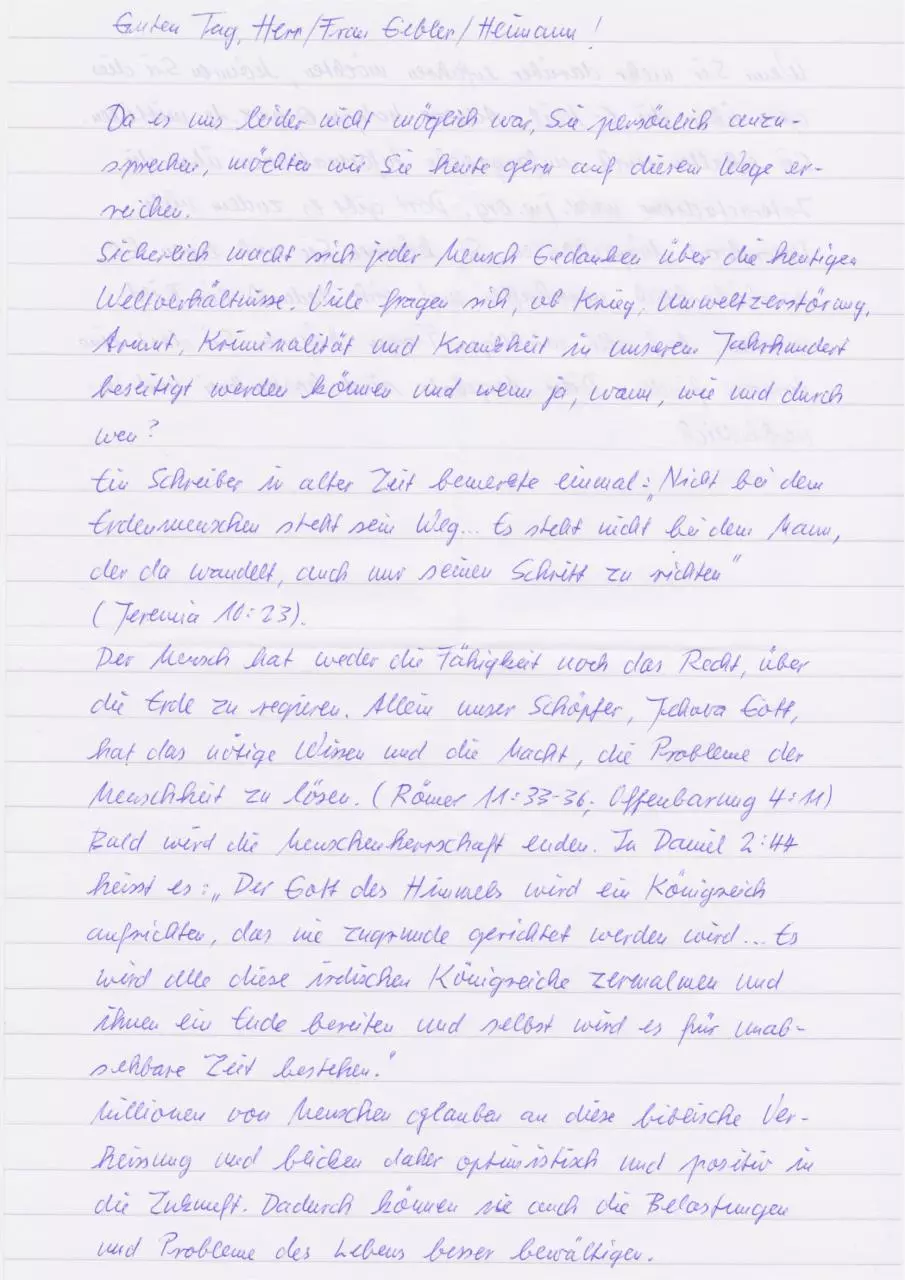 Guten Tag, Herr/Frau Gebler/Heimann!
Da es uns leider nicht möglich war, Sie persönlich anzu-
sprechen, möchten wir Sie heute gern auf diesem Wege er-
reichen.
Sicherlich macht sich jeder Mensch Gedanken über die heutigen
Weltverhältnisse. Viele fragen sich, ob Krieg, Umweltzerstörung,
Armut, Kriminalität und Krankheit in unserem Jahrhundert
beseitigt werden können und wenn ja, wann, wie und durch
wen?
Ein Schreiber in alter Zeit bemerkte einmal: „Nicht bei dem
Erdenmenschen steht sein Weg... Es steht nicht bei dem Mann,
der da wandelt, auch nur seinen Schritt zu richten"
(Jeremia 10:23).
Der Mensch hat weder die Fähigkeit noch das Recht, über
die Erde zu regieren. Allein unser Schöpfer, Jehova Gott,
hat das nötige Wissen und die Macht, die Probleme der
Menschheit zu lösen. (Römer 11:33-36; Offenbarung 4:11)
Bald wird die Menschenherrschaft enden. In Daniel 2:44
heisst es: „Der Gott des Himmels wird ein Königreich
aufrichten, das nie zugrunde gerichtet werden wird... Es
wird alle diese irdischen Königreiche zermalmen und
ihnen ein Ende bereiten und selbst wird es für unab-
sehbare Zeit bestehen."
Millionen von Menschen glauben an diese biblische Ver-
heissung und blicken daher optimistisch und positiv in
die Zukunft. Dadurch können sie auch die Belastungen
und Probleme des Lebens besser bewältigen.